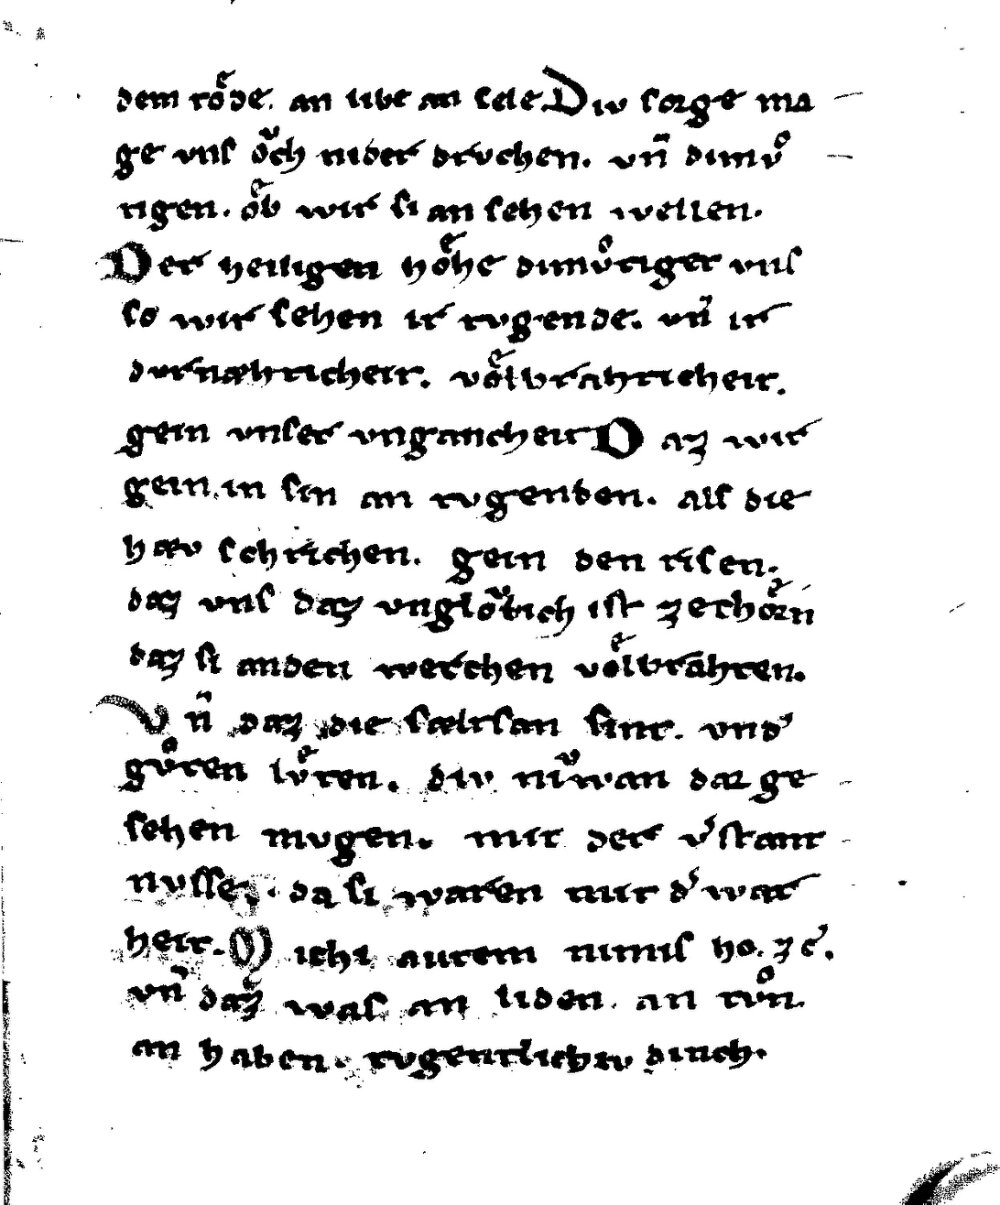 dem toͤde. an libe an sele Div sorge ma
ge vns oͮch nider drvchen. vn̄ dimvͦ
tigen. oͤb wir si an sehen wellen.
Der heiligen hoͤhe dimvͦtiger vns
so wir sehen ir tvgende. vn̄ ir
dvrnæhticheit. voͤlbrahticheit.
gein vnser vngancheit Daz wir
gein in sin an tvgenden. als die
hæv schrichen. gein den risen.
daz vns daz vngloͮblich ist ze choͤrn
daz si anden werchen voͤlbrahten.
Vn̄ daz die sæltsan sint. vnd'
gvͦten lvͤten. div niͮwan dar ge
sehen mvgen. mit der v'stant
nvsse. da si waren mit d' war
heit. Michi autem nimis ho. zc'.
vn̄ daz was an liden. an tvͦn.
an haben. tvgentlichiv dinch.